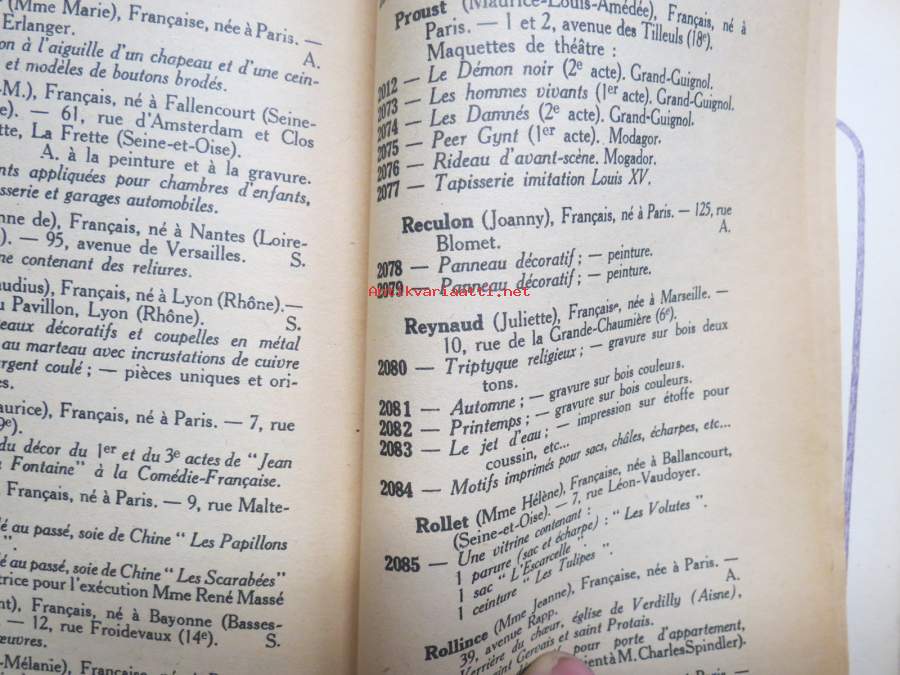 (Mme Marie), Française, née à Paris. —
Erlanger. A.
on à l'aiguille d'un chapeau et d'une cein-
et modèles de boutons brodés.
M.), Français, né à Fallencourt (Seine-
e). — 61, rue d'Amsterdam et Clos
tte, La Frette (Seine-et-Oise).
A. à la peinture et à la gravure.
nts appliquées pour chambres d'enfants,
sserie et garages automobiles.
nne de), Français, né à Nantes (Loire-
). — 95, avenue de Versailles. S.
ne contenant des reliures.
audius), Français, né à Lyon (Rhône).—
u Pavillon, Lyon (Rhône). S.
eaux décoratifs et coupelles en métal
au marteau avec incrustations de cuivre
rgent coulé ; — pièces uniques et ori-
es.
aurice), Français, né à Paris. — 7, rue
9e).
du décor du 1er et du 3e actes de "Jean
Fontaine" à la Comédie-Française.
Français, né à Paris. — 9, rue Malte-
é au passé, soie de Chine " Les Papillons
".
é au passé, soie de Chine " Les Scarabées"
trice pour l'exécution Mme René Massé
nt), Français, né à Bayonne (Basses-
— 12, rue Froidevaux (14e). S.
œuvres.
-Mélanie), Française, née
Proust (Maurice-Louis-Amédée), Français, né à
Paris. — 1 et 2, avenue des Tilleuls (18e).
Maquettes de théâtre :
2012 — Le Démon noir (2e acte). Grand-Guignol.
2073 — Les hommes vivants (1er acte). Grand-Guignol.
2074 — Les Damnés (2e acte). Grand-Guignol.
2075 — Peer Gynt (1er acte). Modagor.
2076 — Rideau d'avant-scène. Mogador.
2077 — Tapisserie imitation Louis XV.
Reculon (Joanny), Français, né à Paris. — 125, rue
Blomet. A.
2078 — Panneau décoratif ; — peinture.
2079 — Panneau décoratif ; — peinture.
Antikvariaatti.net
Reynaud (Juliette), Française, née à Marseille. —
10, rue de la Grande-Chaumière (6e).
2080 — Triptyque religieux ; — gravure sur bois deux
tons.
2081 — Automne ; — gravure sur bois couleurs.
2082 — Printemps ; — gravure sur bois couleurs.
2083 — Le jet d'eau ; — impression sur étoffe pour
coussin, etc...
2084 — Motifs imprimés pour sacs, châles, écharpes, etc...
Rollet (Mme Hélène), Française, née à Ballancourt,
(Seine-et-Oise). — 7, rue Léon-Vaudoyer.
2085 — Une vitrine contenant :
1 parure (sac et écharpe) : " Les Volutes ".
1 sac " L'Escarcelle ".
1 ceinture " Les Tulipes ".
Rollince (Mme Jeanne), Française, née à Paris. —
39, avenue Rapp. A.
Verrière du chœur, église de Verdilly (Aisne),
saint Gervais et saint Protais.
pour porte d'appartement,
ient à M. Charles Spindler).